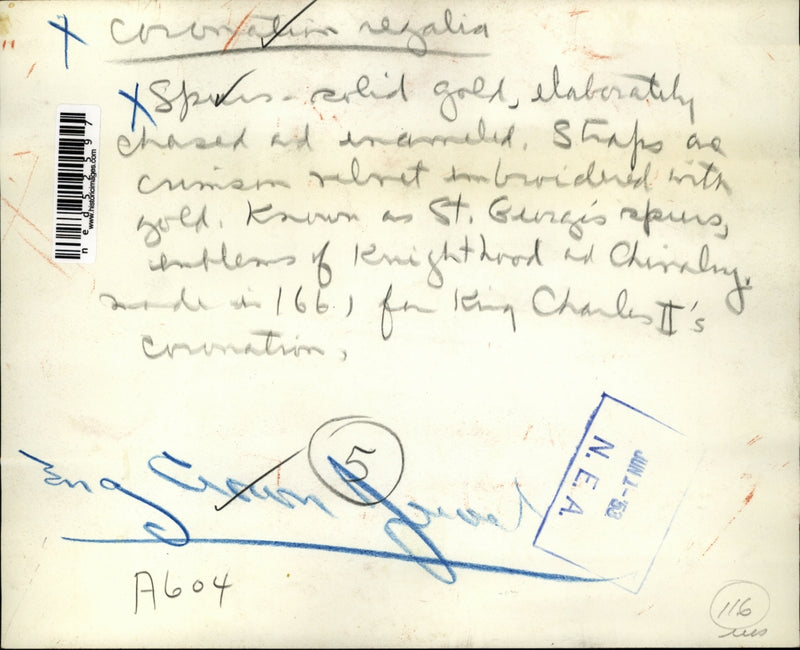 Coronation regalia
Spurs - solid gold, elaborately
chased ad enameled. Straps are
crimson velvet embroidered with
gold. Known as St. George's spurs,
emblems of Knighthood ad Chivalry.
made in 1661 for King Charles II's
coronation.
ned52597
www.historicimages.com
5
Eng Crown Jewel
JUN 2-'53
N.E.A.
A604
116